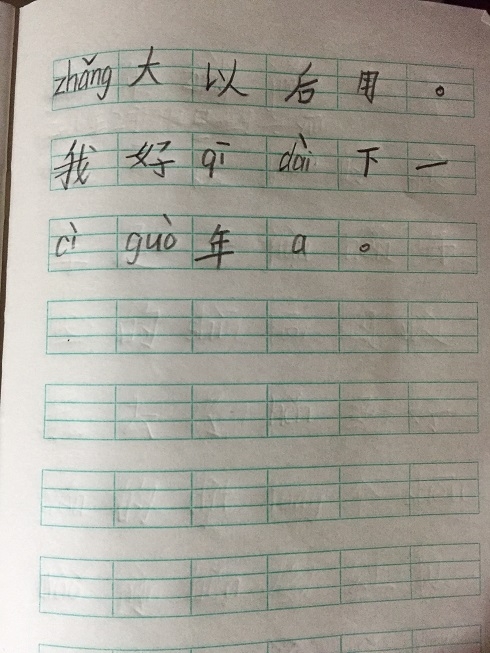 zhǎng大以后用。
我好qī dài下一
cì guò年a。